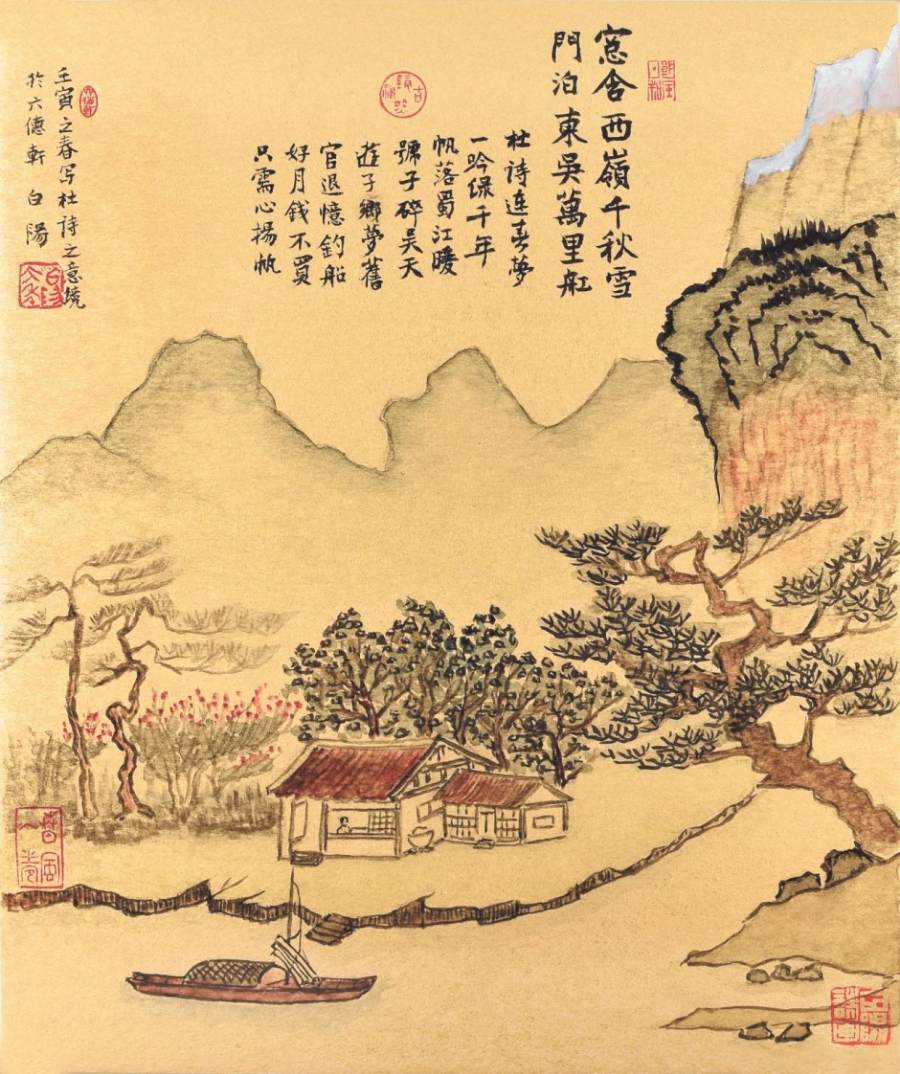 窓含西嶺千秋雪
門泊東吳萬里舡
杜诗连春夢
一吟绿千年
帆落蜀江暖
號子碎吴天
遊子鄉夢舊
官退憶釣船
好月錢不買
只需心揚帆
壬寅之春写杜诗之意境
於六德軒 白陽